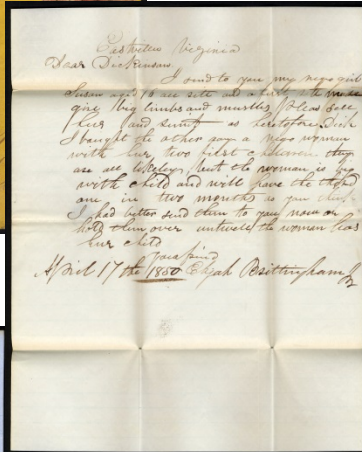 Eastville Virginia
Dear Dickenson
I send to you my negro girl
Susan aged 16
give big limbs and muscles Pleas sell
her and as heretofore
I bought the other day a negro woman
with her two first children they
are all likely, but the woman is big
with child and will have the third
one in two months do you think
I had better send them to you now or
hold them over until the woman has
her child
April 17 the 1850 Elijah Brittingham